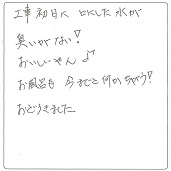 工事初日に口にした水が
臭いがない!
おいしいやん♪
お風呂も今までと何かちゃう!
おどろきました